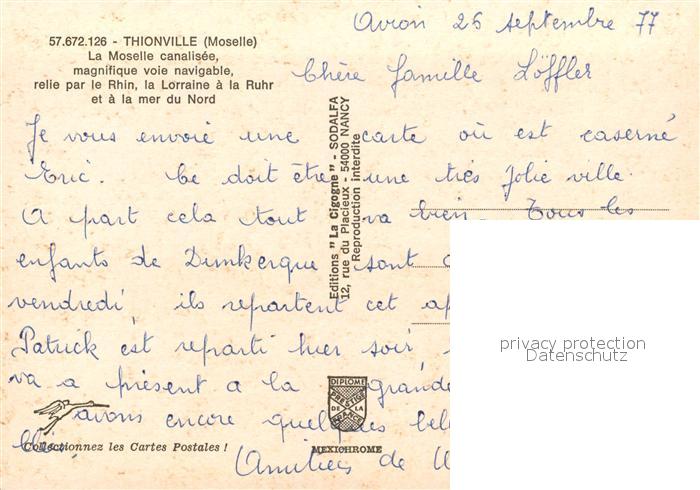 57.672.126 - THIONVILLE (Moselle)
La Moselle canalisée,
magnifique voie navigable,
relie par le Rhin, la Lorraine à la Ruhr
et à la mer du Nord
Avion 26 septembre 77
Chère famille Löffler
Je vous envoie une carte où est caserné
Eric. Ce doit être une très jolie ville.
A part cela tout va bien. Tous les
enfants de Dunkerque sont
vendredi ils repartent cet
Patrick est reparti hier soir
va a présent a la grande
avons encore quelques
Amitiés de
Editions "La Cigogne" - SODALFA
12, rue du Placieux - 54000 NANCY
Reproduction interdite
DIPLOME
PRESTIGE
DE LA
FRANCE
MEXICHROME
Collectionnez les Cartes Postales !
privacy protection
Datenschutz